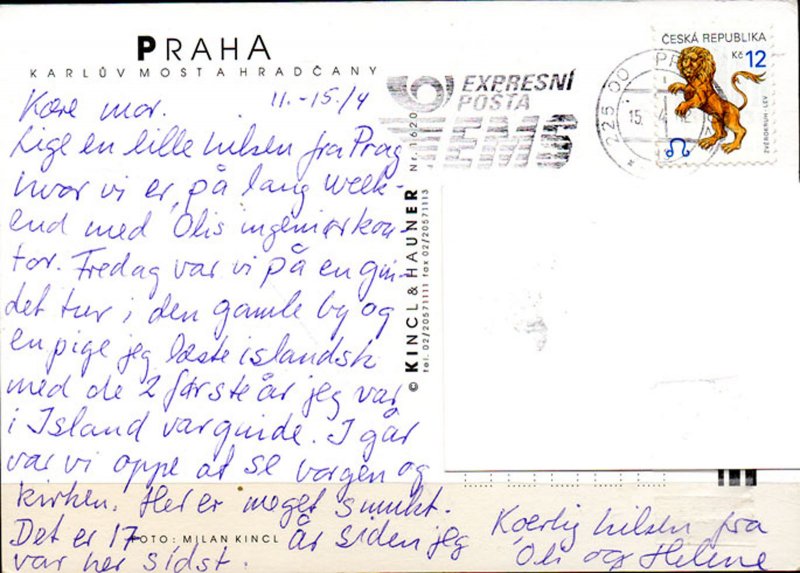 PRAHA
KARLŮV MOST A HRADČANY
11.-15/4
Kære mor.
Lige en lille hilsen fra Prag
hvor vi er på lang week-
end med Olis ingeniørkon-
tor. Fredag var vi på en gui-
det tur i den gamle by og
en pige jeg læste islandsk
med de 2 første år jeg var
i Island var guide. I går
var vi oppe at se borgen og
kirken. Her er meget smukt.
Det er 17 år siden jeg
var her sidst.
Kærlig hilsen fra
Oli og Helene
FOTO: MILAN KINCL
© KINCL & HAUNER Nr. 1620
tel. 02/20571111 fax 02/20571113
EXPRESNÍ
POŠTA
EMS
225 00
15.
ČESKÁ REPUBLIKA
Kč 12
ZVĚROKRUH - LEV